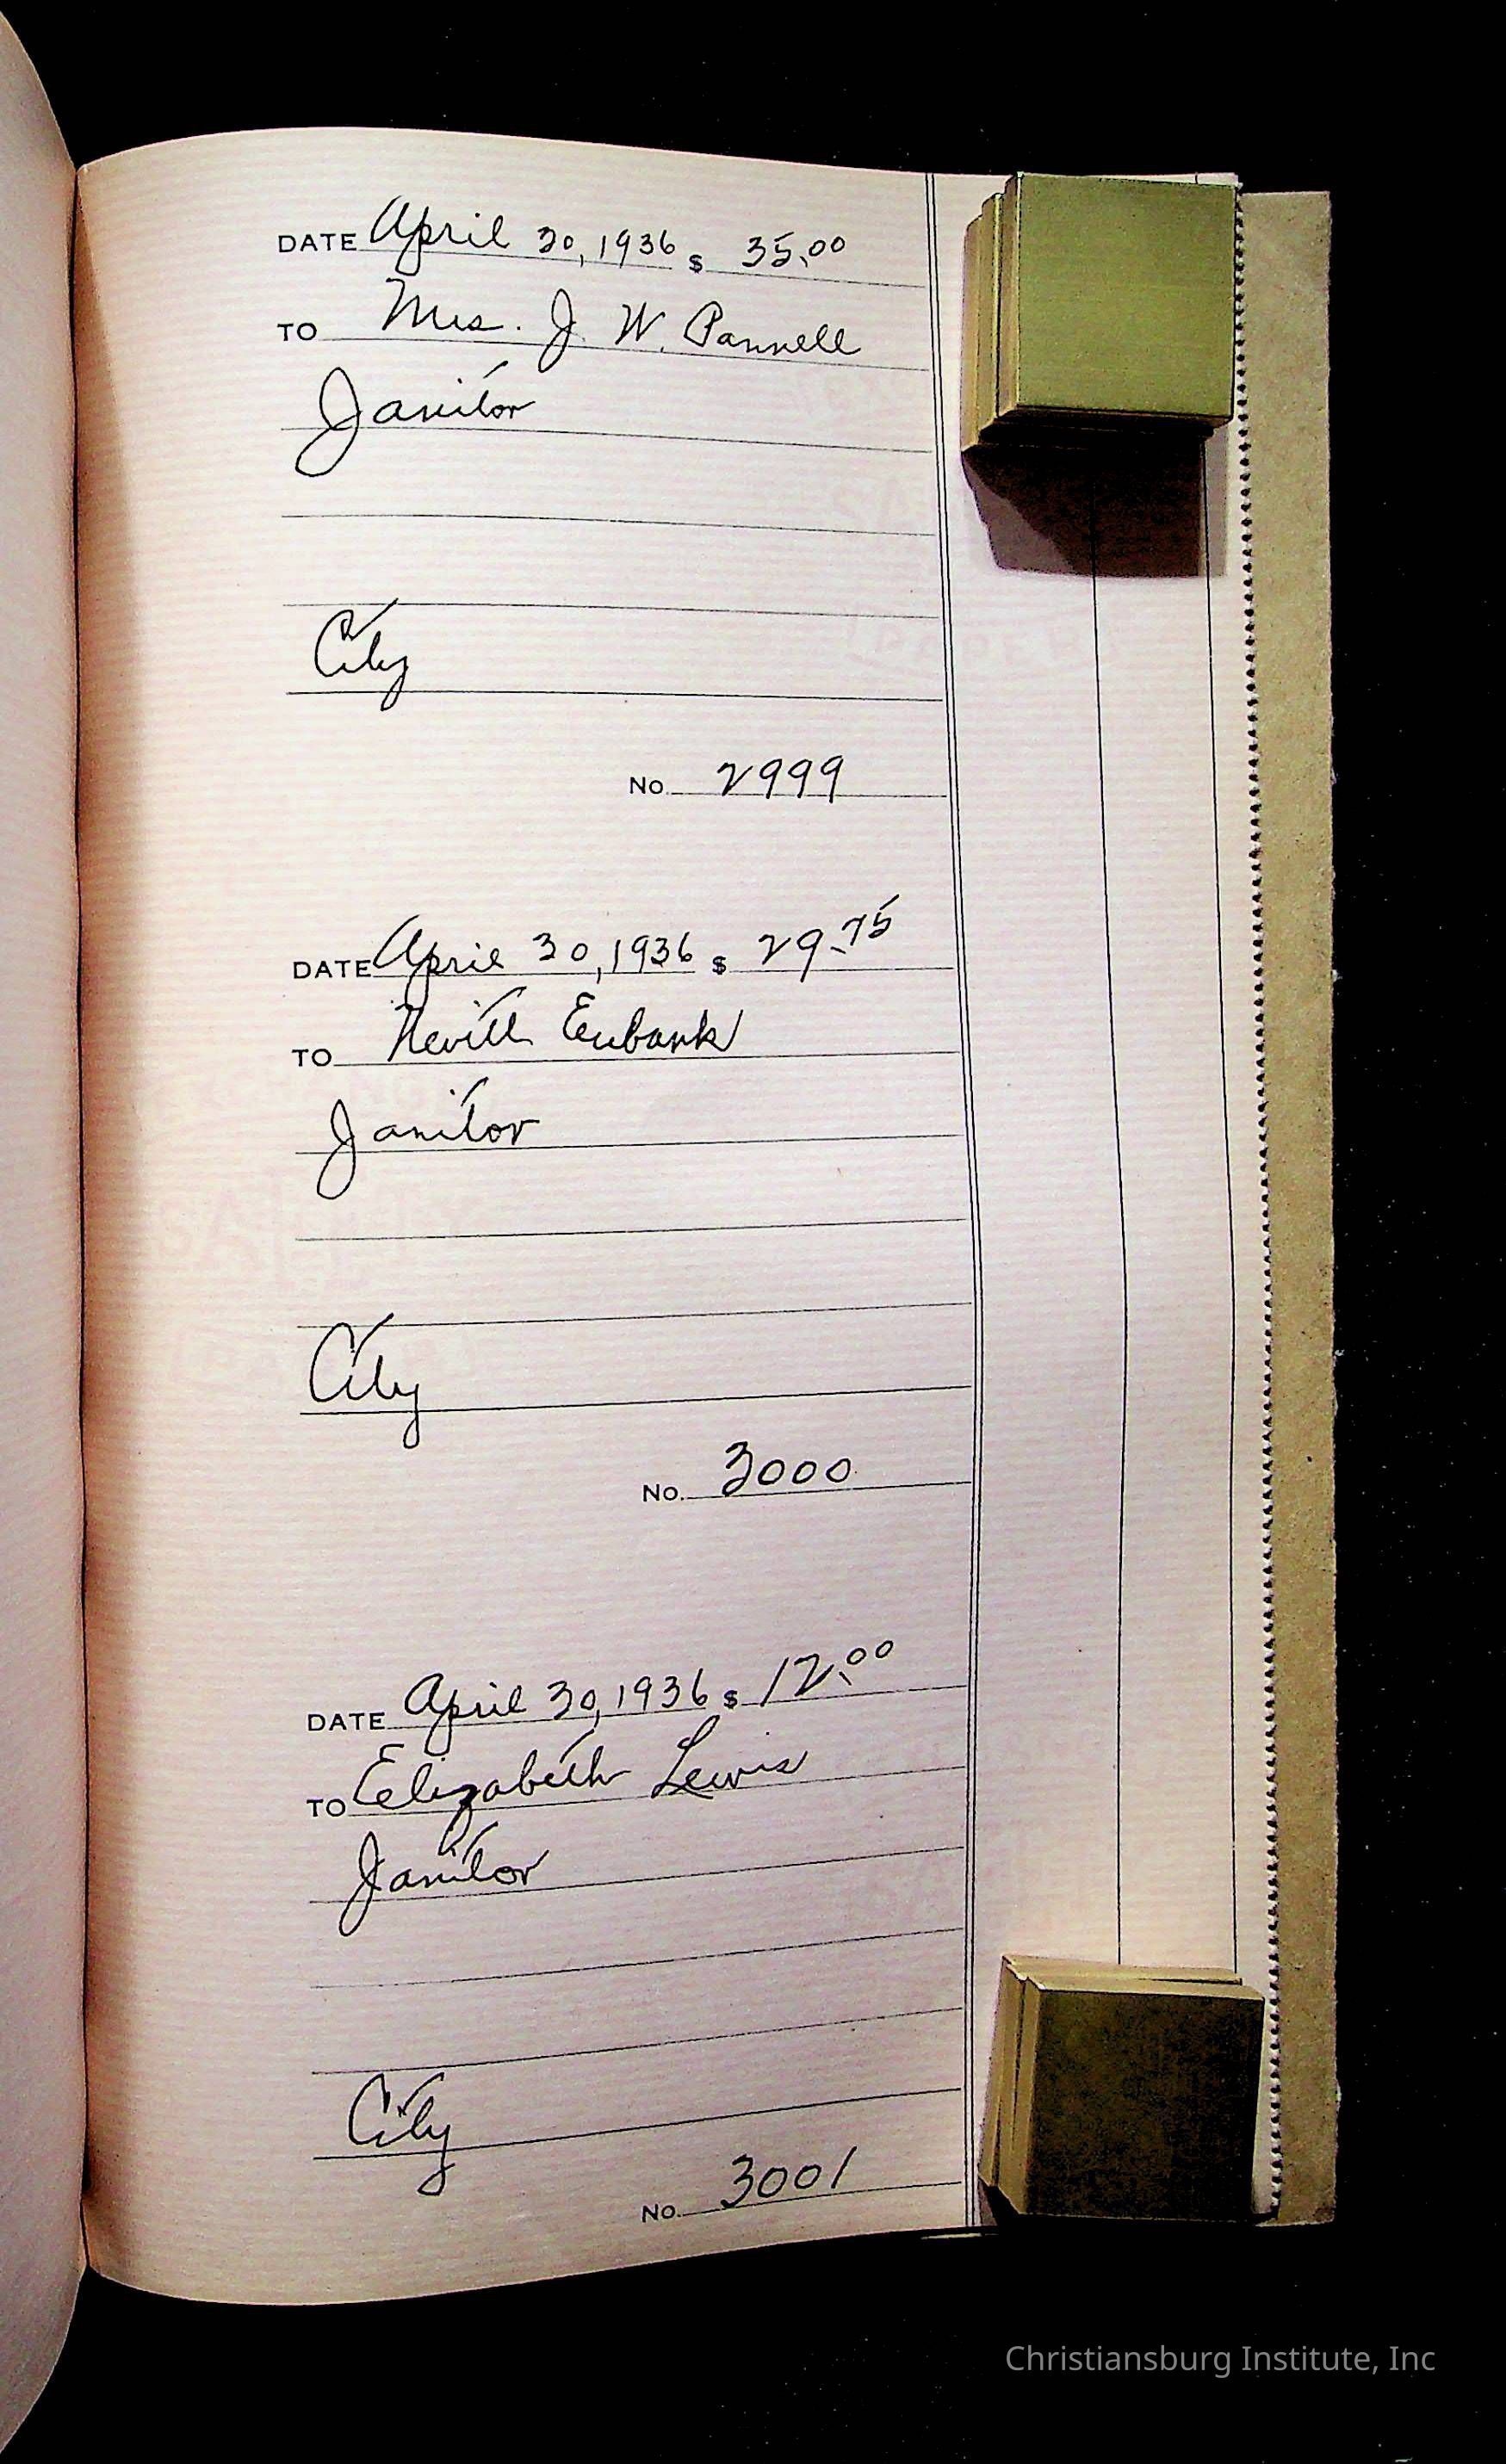 DATE April 30, 1936 $ 35.00
TO Mrs. J. W. Pannell
Janitor
City
No. 2999
DATE April 30, 1936 $ 29.75
TO Nevill Eubank
Janitor
City
No. 3000
DATE April 30, 1936 $ 12.00
TO Elizabeth Lewis
Janitor
City
No. 3001
Christiansburg Institute, Inc